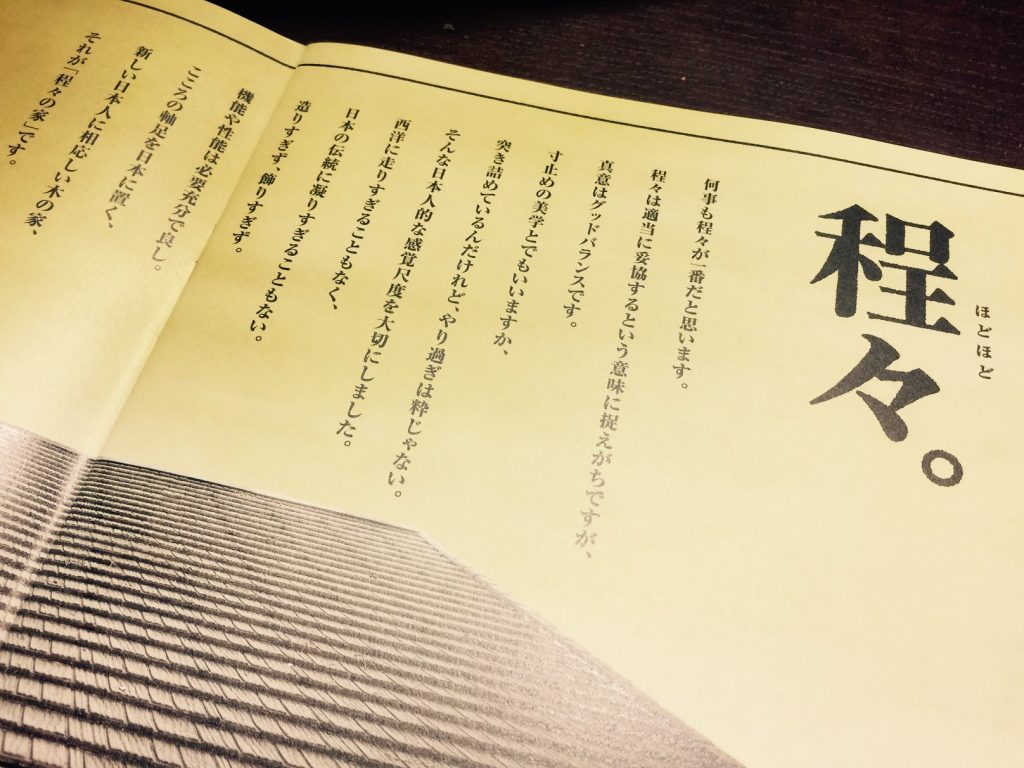 程々。
ほどほど
何事も程々が一番だと思います。
程々は適当に妥協するという意味に捉えがちですが、
真意はグッドバランスです。
寸止めの美学とでもいいますか、
突き詰めているんだけれど、やり過ぎは粋じゃない。
そんな日本人的な感覚尺度を大切にしました。
西洋に走りすぎることもなく、
日本の伝統に凝りすぎることもない。
造りすぎず、飾りすぎず。
機能や性能は必要充分で良し。
こころの軸足を日本に置く、
新しい日本人に相応しい木の家、
それが「程々の家」です。